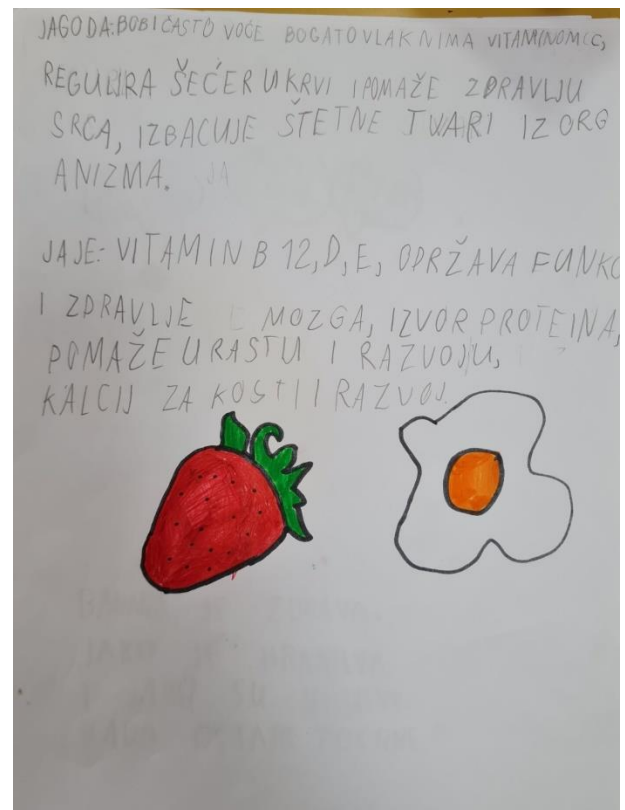 JAGODA: BOBIČASTO VOĆE BOGATO VLAKNIMA VITAMINOM C,
REGULIRA ŠEĆER U KRVI I POMAŽE ZDRAVLJU
SRCA, IZBACUJE ŠTETNE TVARI IZ ORG
ANIZMA.
JAJE: VITAMIN B 12, D, E, ODRŽAVA FUNKC
I ZDRAVLJE MOZGA, IZVOR PROTEINA,
POMAŽE U RASTU I RAZVOJU,
KALCIJ ZA KOSTI I RAZVOJ.